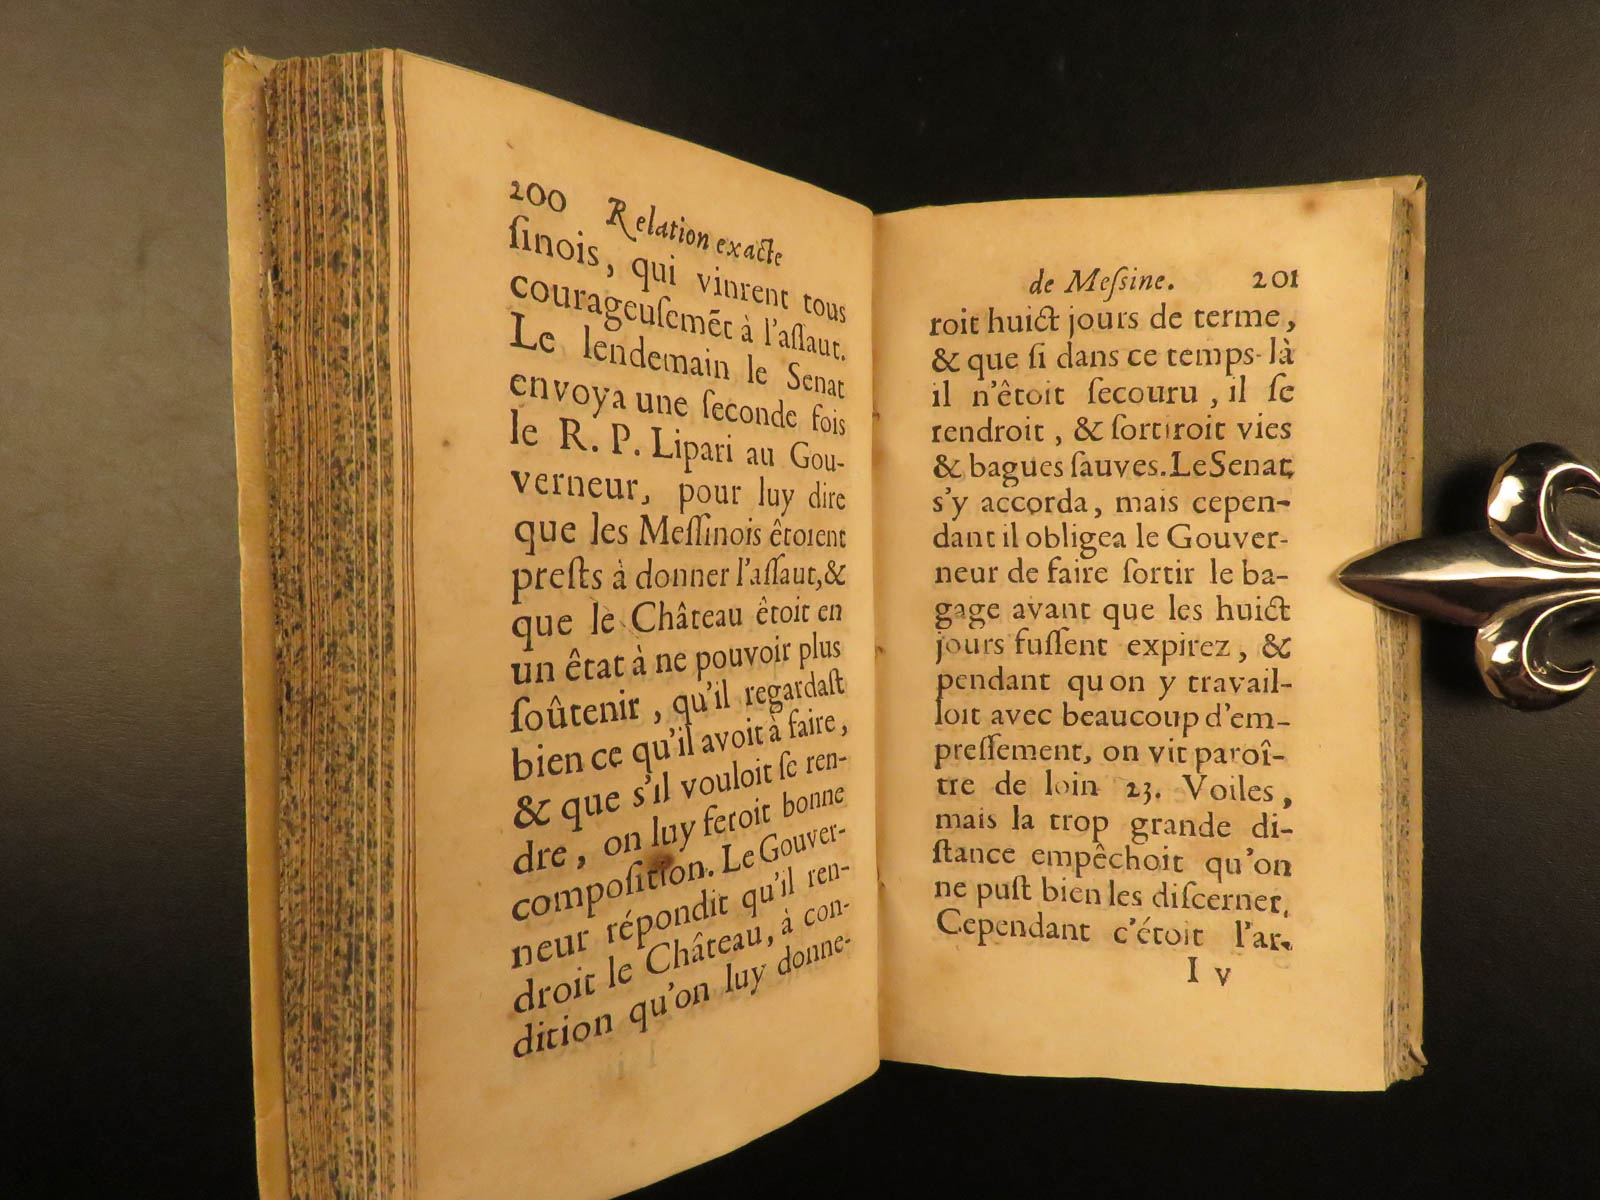 200 Relation exacte
ſinois, qui vinrent tous
courageuſemẽt à l'aſſaut.
Le lendemain le Senat
envoya une ſeconde fois
le R. P. Lipari au Gou-
verneur, pour luy dire
que les Meſſinois êtoient
preſts à donner l'aſſaut, &
que le Château êtoit en
un êtat à ne pouvoir plus
ſoûtenir, qu'il regardaſt
bien ce qu'il avoit à faire,
& que s'il vouloit ſe ren-
dre, on luy feroit bonne
compoſition. Le Gouver-
neur répondit qu'il ren-
droit le Château, à con-
dition qu'on luy donne-
de Meſsine. 201
roit huict jours de terme,
& que ſi dans ce temps-là
il n'êtoit ſecouru, il ſe
rendroit, & ſortiroit vies
& bagues ſauves. Le Senat
s'y accorda, mais cepen-
dant il obligea le Gouver-
neur de faire ſortir le ba-
gage avant que les huict
jours fuſſent expirez, &
pendant qu on y travail-
loit avec beaucoup d'em-
preſſement, on vit paroî-
tre de loin 23. Voiles,
mais la trop grande di-
ſtance empêchoit qu'on
ne puſt bien les diſcerner.
Cependant c'étoit l'ar-
I v